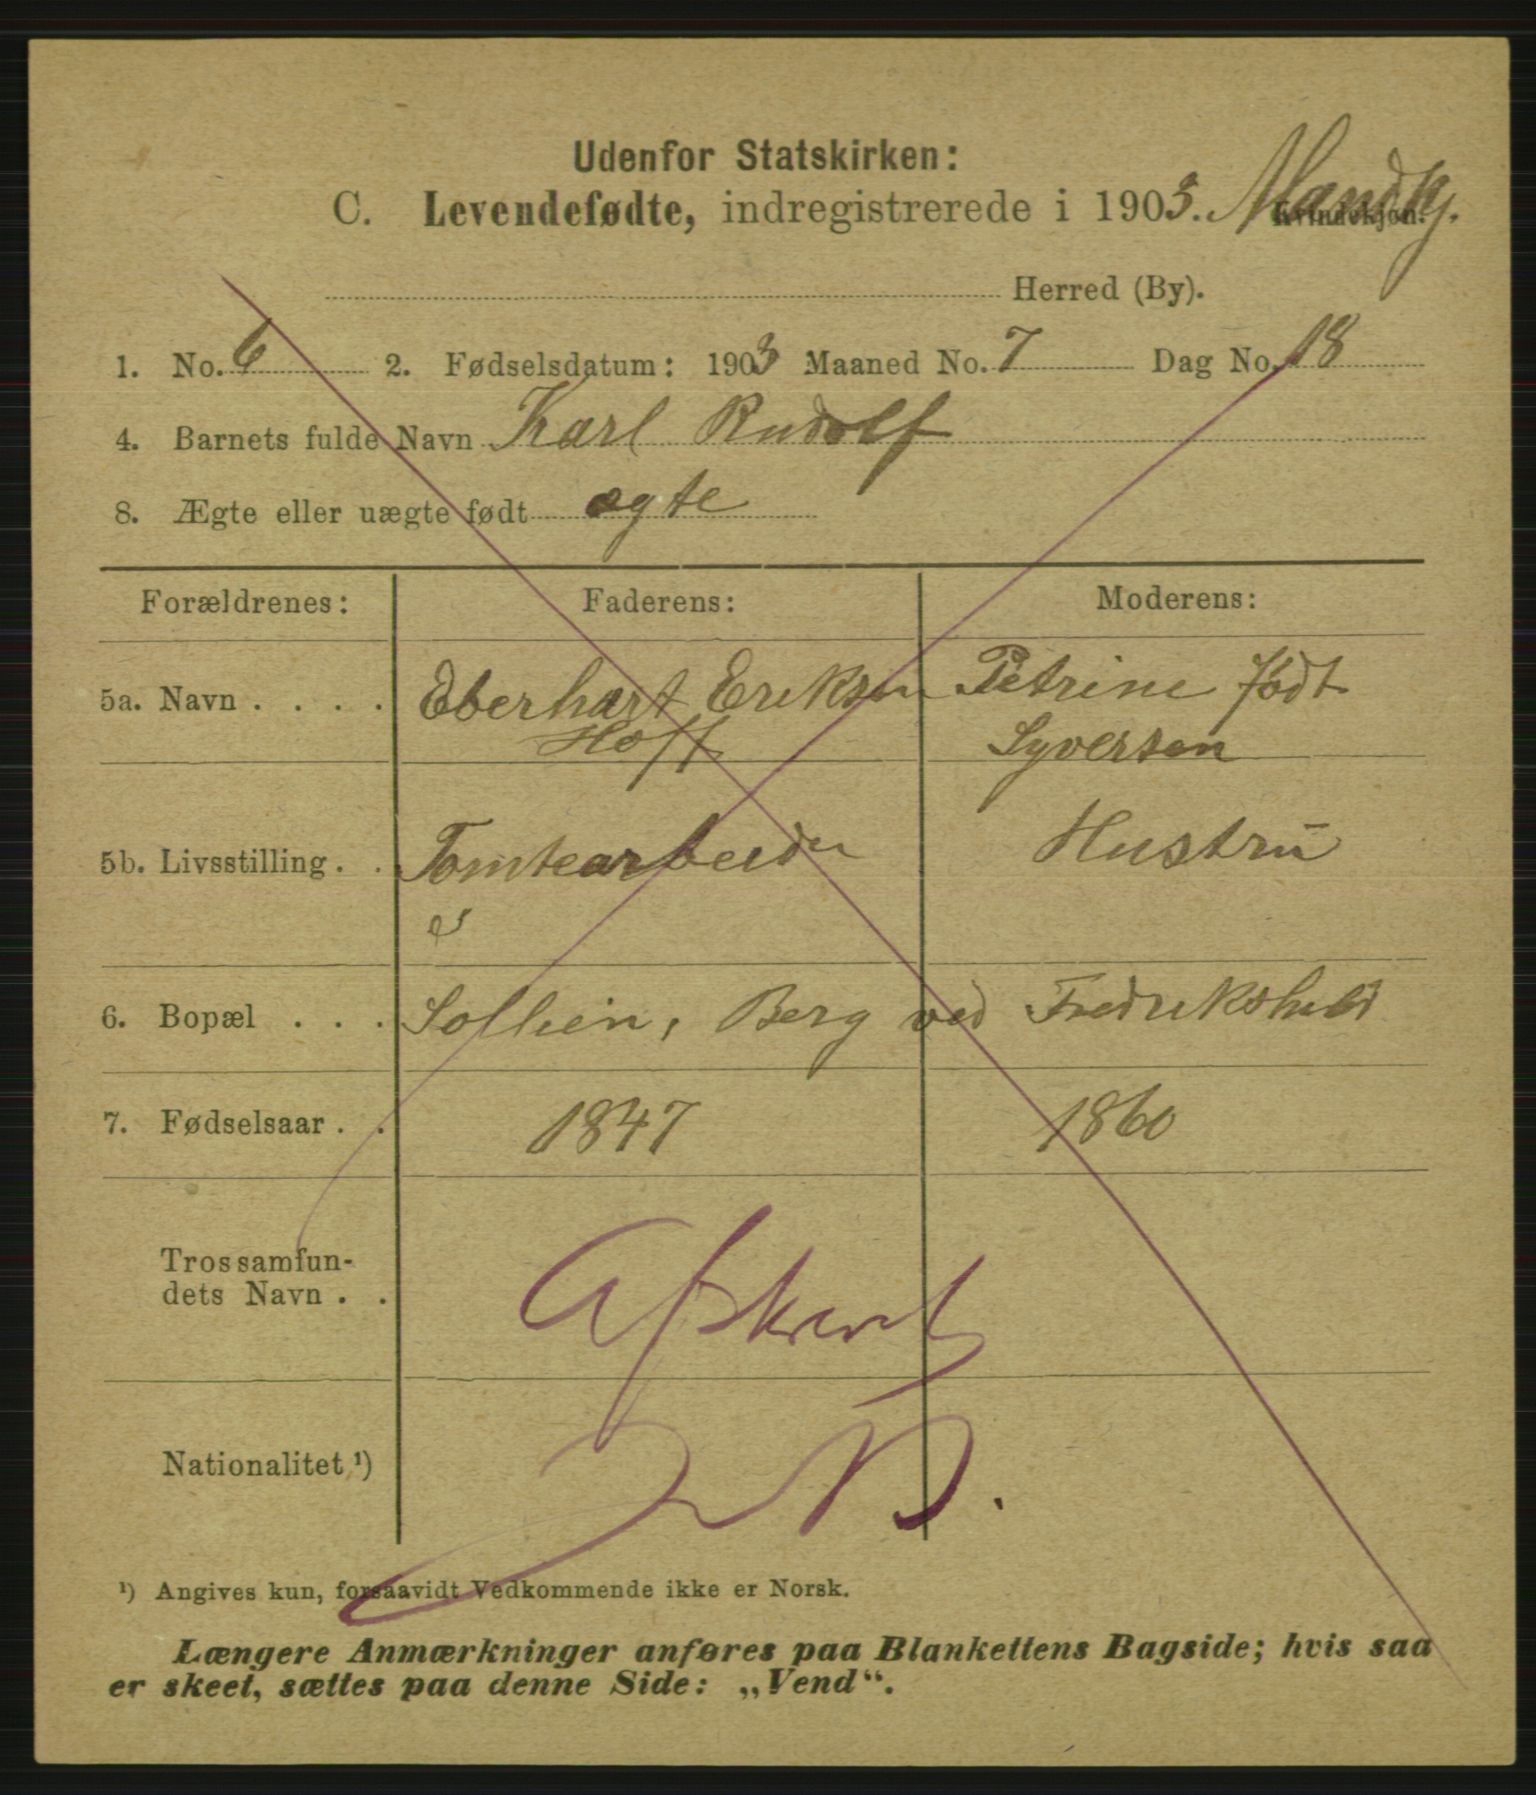 Udenfor Statskirken:
C. Levendefødte, indregistrerede i 1903. Mandkj. Kvindekjøn.
Herred (By).
1. No. 6 2. Fødselsdatum: 1903 Maaned No. 7 Dag No. 18
4. Barnets fulde Navn Karl Rudolf
8. Ægte eller uægte født ægte
Forældrenes: Faderens: Moderens:
5a. Navn . . . . Eberhart Eriksen Petrine født
Hoff Syversen
5b. Livsstilling . . Tomtearbeider Hustru
6. Bopæl . . . Sollien, Berg ved Fredrikshald
7. Fødselsaar . . 1847 1860
Trossamfun-
dets Navn . .
Afskrevet
Nationalitet ¹)
¹) Angives kun, forsaavidt Vedkommende ikke er Norsk.
Længere Anmærkninger anføres paa Blankettens Bagside; hvis saa
er skeet, sættes paa denne Side: „Vend“.